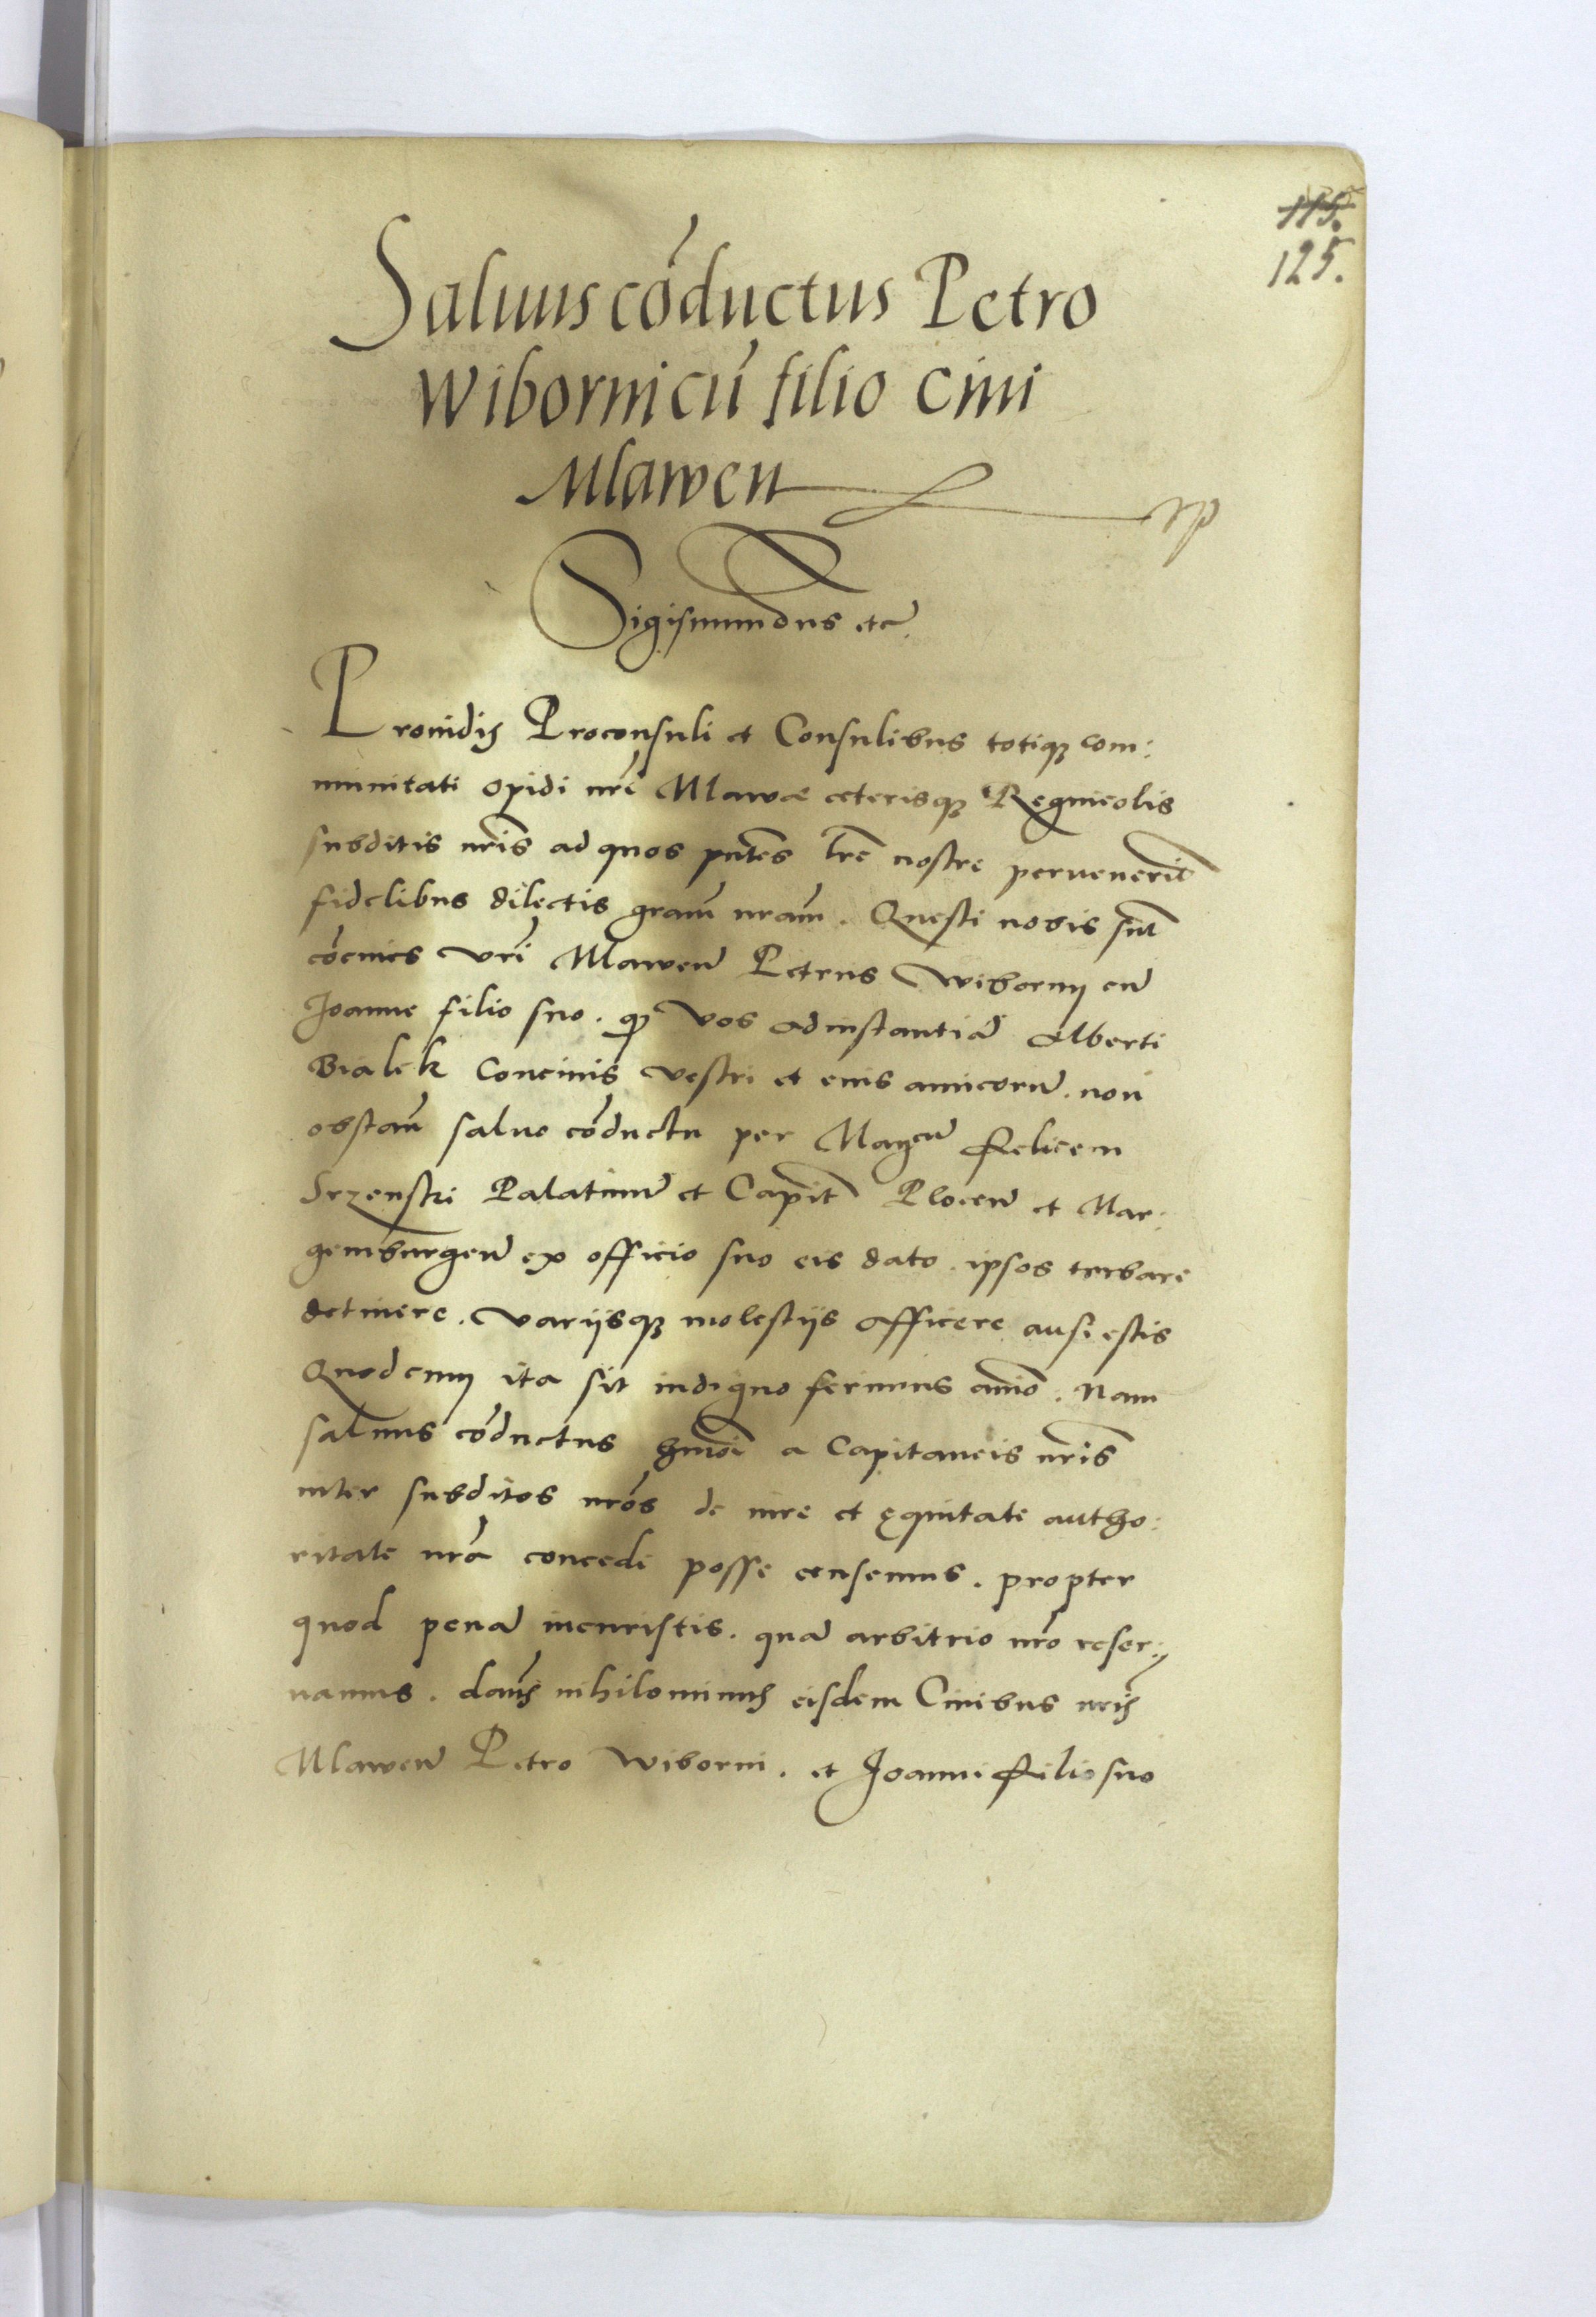 115.
125.
Saluus cōductus Petro
Wibornicū filio Ciui
Mlawen
Sigismundus etc
Prouidis Proconsuli et Consulibus totiqȝ com:
munitati opidi nrī Mlawæ ceterisqȝ Regnicolis
subditis nrīs ad quos pntēs lrē nostre peruenerīt
fidelibus dilectis grām nrām. Questi nobis sūt
cōciues vrī Mlawen Petrus Wiborny cū
Joanne filio suo. qꝫ vos ad instantiā Alberti
Bialek Conciuis vestri et eius amicorū. non
obstān saluo cōductu per Magcū Felicem
Srzenski Palatinū et Capit Plocen et Mar:
gemburgen ex officio suo eis dato. ipsos turbare
detinere. varijsqȝ molestijs afficere ausi estis
Quod cum ita sit indigno ferimus anīo. Nam
saluus cōductus hmōi a Capitaneis nrīs
inter subditos nrōs de iure et ęquitate autho:
ritate nrā concedi posse censemus. propter
quod penā incuristis. quā arbitrio nrō reser:
uamus. dam̄s nihilominus eisdem Ciuibus nrīs
Mlawen Petro Wiborni. et Joanni filio suo